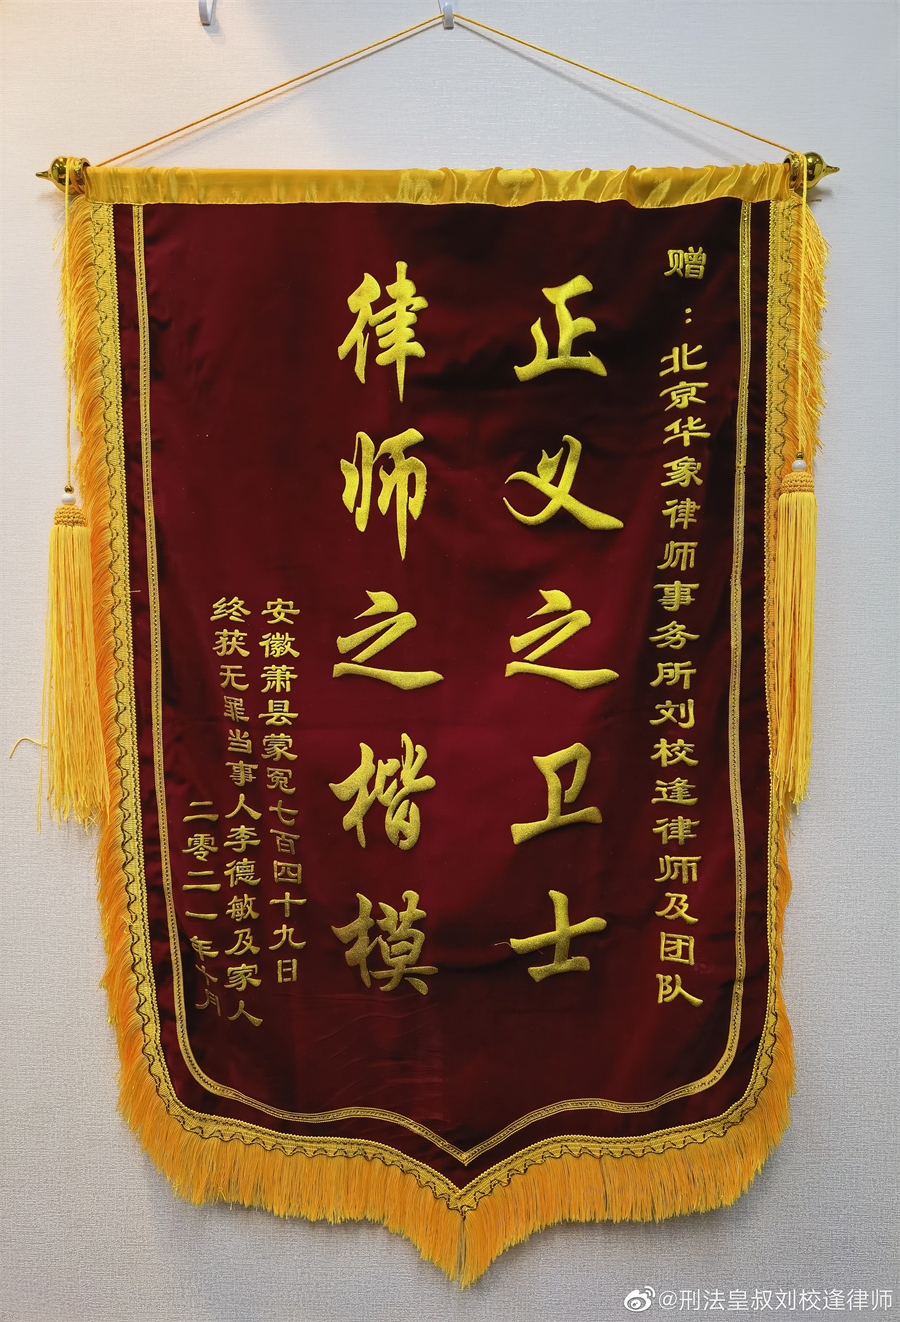 赠：北京华象律师事务所刘校逢律师及团队
正义之卫士
律师之楷模
安徽萧县蒙冤七百四十九日
终获无罪当事人李德敏及家人
二零二一年十月
@刑法皇叔刘校逢律师